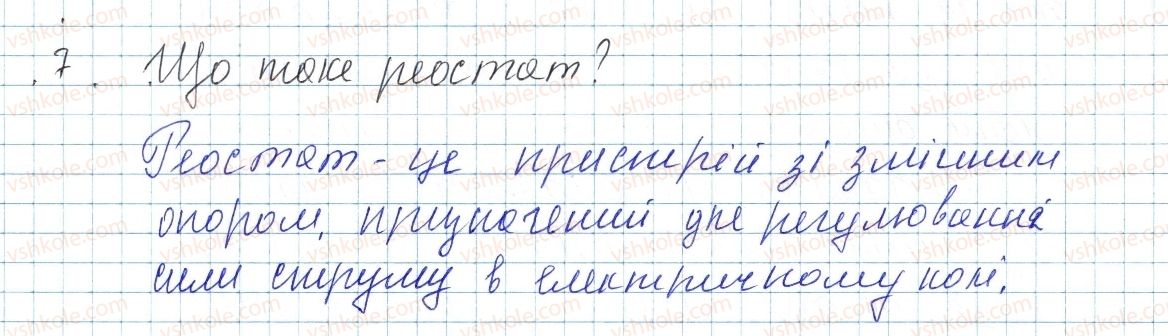 7. Що таке реостат?
Реостат - це пристрій зі змінним
опором, призначений для регулювання
сили струму в електричному колі.